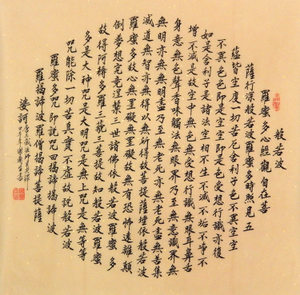 般若波
羅蜜多心經觀自在菩
薩行深般若波羅蜜多時照見五
蘊皆空度一切苦厄舍利子色不異空空
不異色色即是空空即是色受想行識亦復
如是舍利子是諸法空相不生不滅不垢不淨不
增不減是故空中無色無受想行識無眼耳鼻舌
身意無色聲香味觸法無眼界乃至無意識界無
無明亦無無明盡乃至無老死亦無老死盡無苦集
滅道無智亦無得以無所得故菩提薩埵依般若波
羅蜜多故心無罣礙無罣礙故無有恐怖遠離顛
倒夢想究竟涅槃三世諸佛依般若波羅蜜多
故得阿耨多羅三藐三菩提故知般若波羅蜜
多是大神咒是大明咒是無上咒是無等等
咒能除一切苦真實不虛故說般若波
羅蜜多咒即說咒曰揭諦揭諦波
羅揭諦波羅僧揭諦菩提薩
婆訶